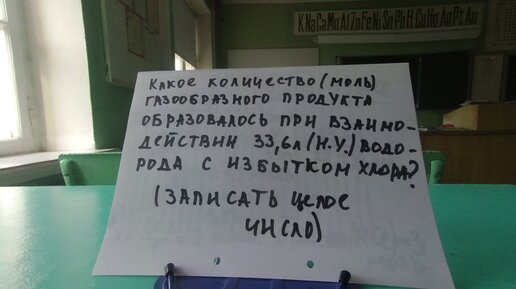 K Na Ca Mg Al Zn Fe Ni Sn Pb H Cu Hg Ag Pt Au
КАКОЕ КОЛИЧЕСТВО (МОЛЬ)
ГАЗООБРАЗНОГО ПРОДУКТА
ОБРАЗОВАЛОСЬ ПРИ ВЗАИМО-
ДЕЙСТВИИ 33,6 л (Н.У.) ВОДО-
РОДА С ИЗБЫТКОМ ХЛОРА?
(ЗАПИСАТЬ ЦЕЛОЕ
ЧИСЛО)